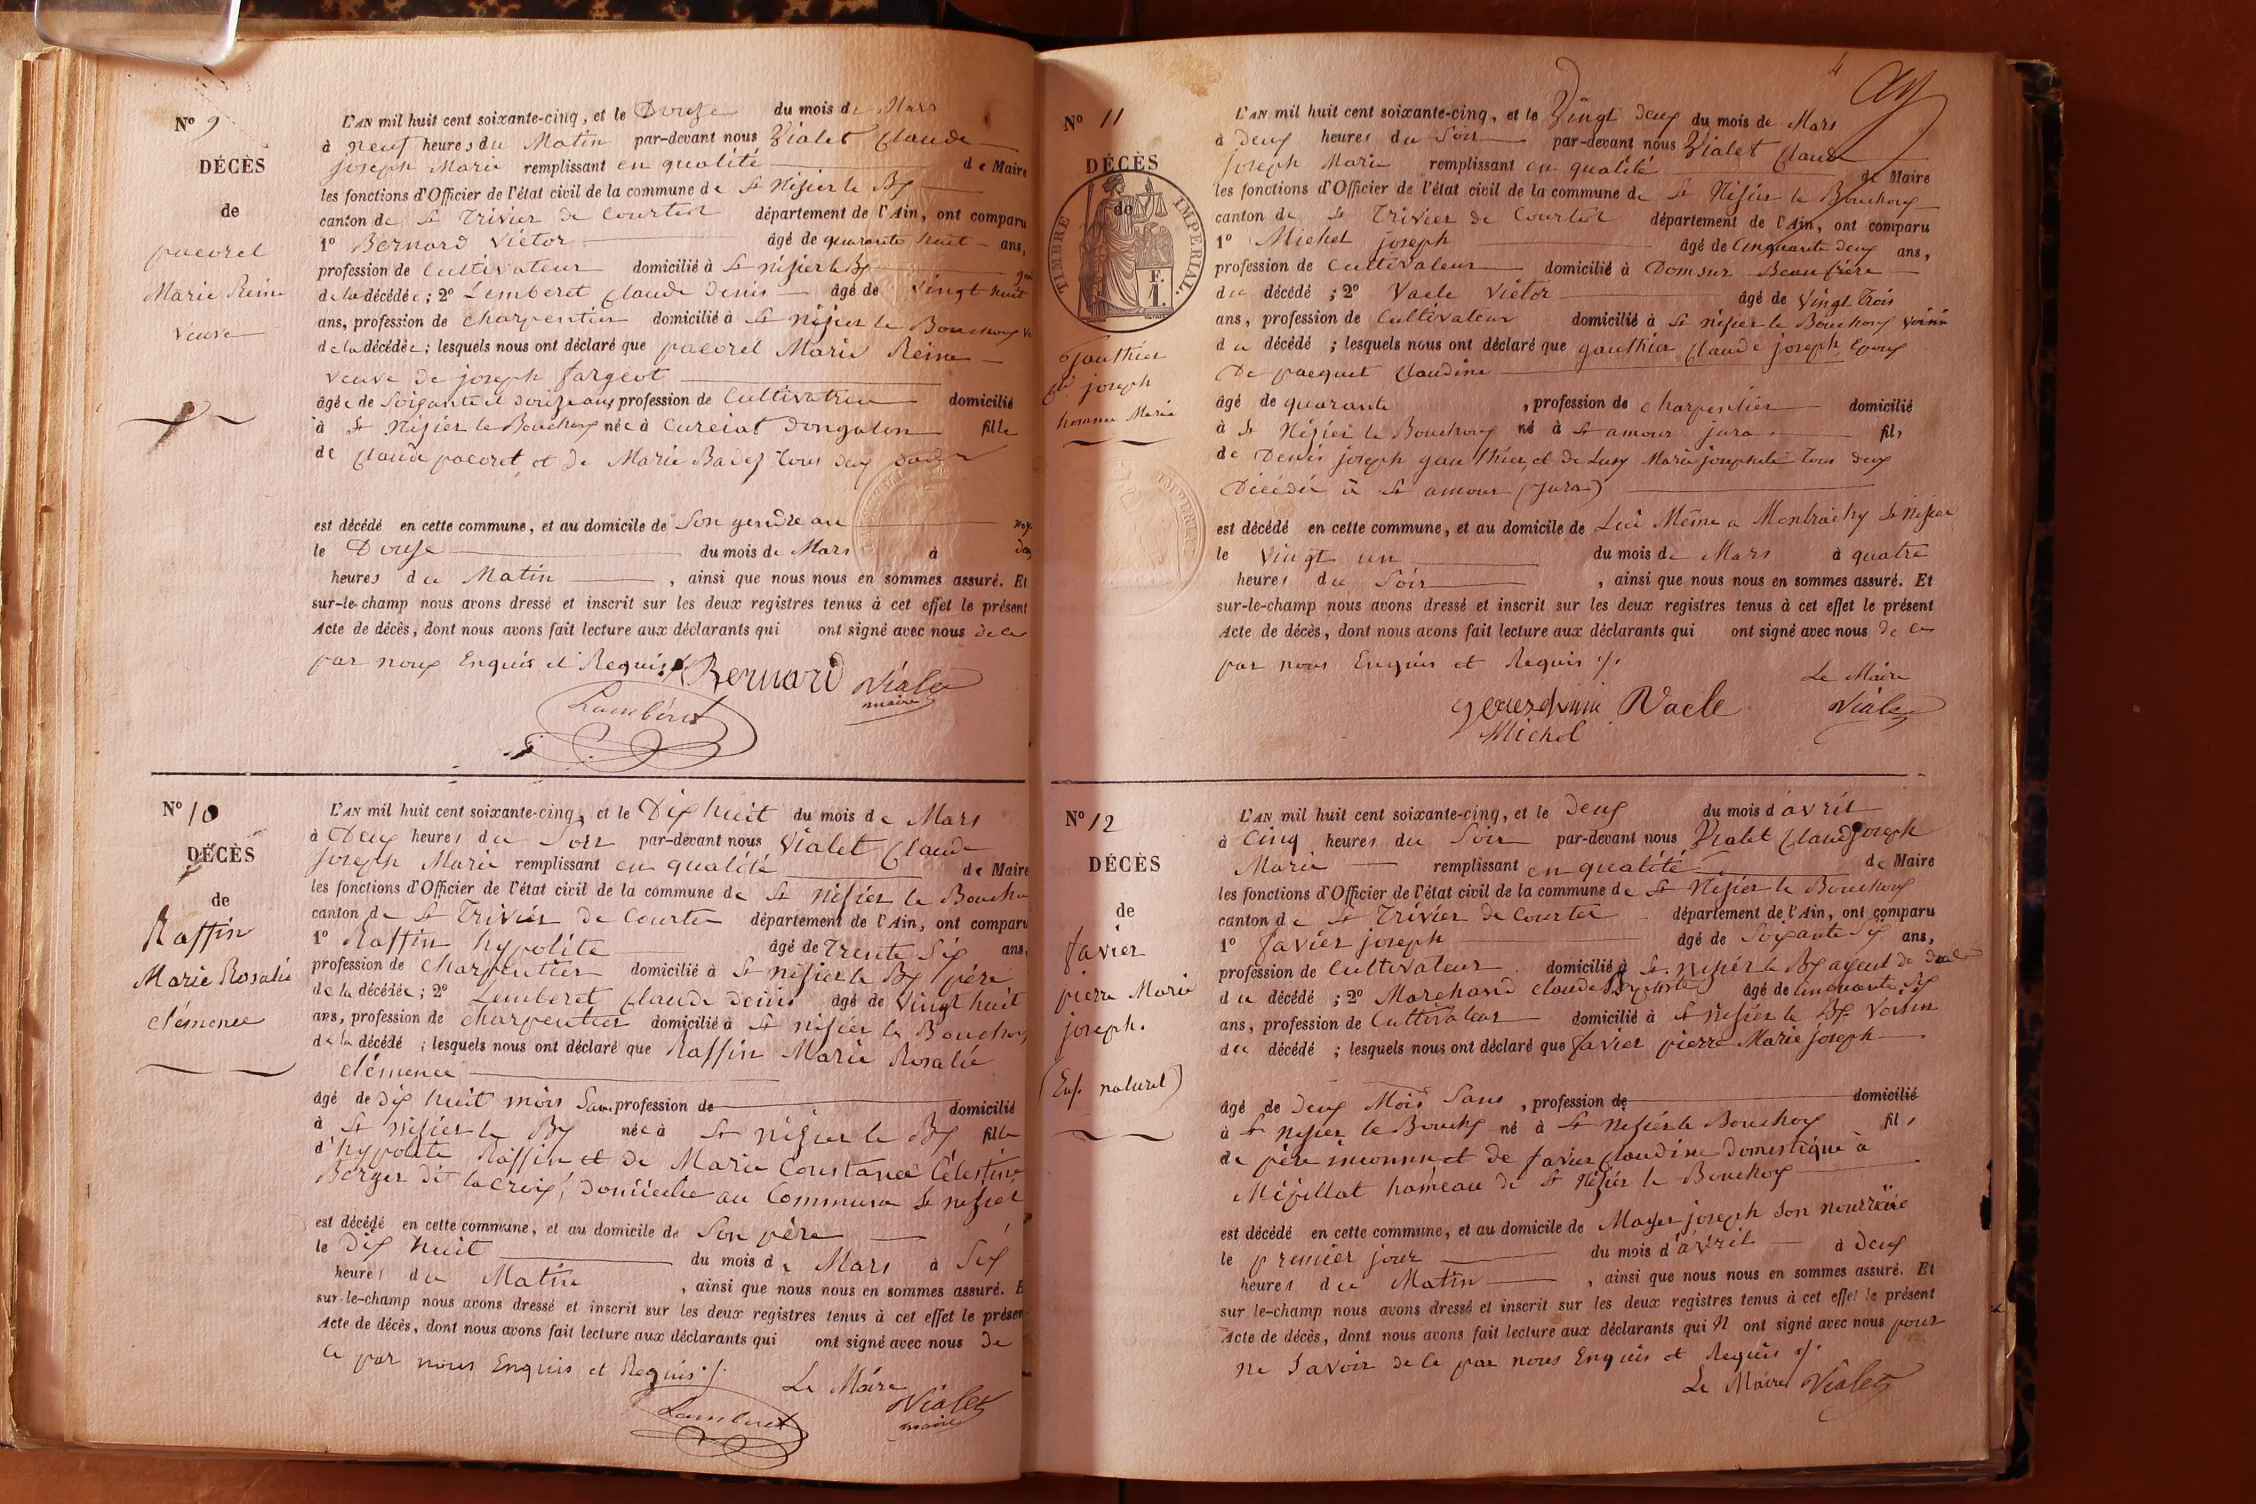 Nº 9
DÉCÈS
de
pacoret
Marie Reine
veuve
L'AN mil huit cent soixante-cinq, et le Douze du mois de Mars
à neuf heures du Matin par-devant nous Vialet Claude
joseph Marie remplissant en qualité de Maire
les fonctions d'Officier de l'état civil de la commune de St Nisier le Bx
canton de St Trivier de Courtes département de l'Ain, ont comparu
1º Bernard Victor âgé de quarante huit ans,
profession de Cultivateur domicilié à St nisier le Bx
de la décédée ; 2º Lemberet Claude Denis âgé de Vingt huit
ans, profession de charpentier domicilié à St nisier le Bouchoux
de la décédée ; lesquels nous ont déclaré que pacoret Marie Reine
veuve de joseph fargeot
âgée de Soixante et douze ans profession de Cultivatrice domicilié
à St Nisier le Bouchoux née à Cuiciat Dongalon fille
de Claude pacoret et de Marie Badez tous deux
est décédé en cette commune, et au domicile de Son gendre au
le Douze du mois de Mars à
heures du Matin , ainsi que nous nous en sommes assuré. Et
sur-le-champ nous avons dressé et inscrit sur les deux registres tenus à cet effet le présent
Acte de décès, dont nous avons fait lecture aux déclarants qui ont signé avec nous de ce
par nous Enquis et Requis ./. Bernard Vialet
maire
Lamberet
Nº 10
DÉCÈS
de
Raffin
Marie Rosalie
clémence
L'AN mil huit cent soixante-cinq, et le Dix huit du mois de Mars
à Deux heures du Soir par-devant nous Vialet Claude
joseph Marie remplissant en qualité de Maire
les fonctions d'Officier de l'état civil de la commune de St Nisier le Boucho
canton de St Trivier de Courte département de l'Ain, ont comparu
1º Raffin hypolite âgé de Trente Six ans,
profession de charpentier domicilié à St nisier le Bx père
de la décédée ; 2º Lemberet Claude Denis âgé de Vingt huit
ans, profession de charpentier domicilié à St nisier le Bouchoux
de la décédé ; lesquels nous ont déclaré que Raffin Marie Rosalie
clémence
âgé de dix huit mois Sans profession de domicilié
à St nisier le Bx née à St nisier le Bx fille
d'hypolite Raffin et de Marie Constance Célestine
Berger dit lacroix, domiciliée au Commun St nisier
est décédé en cette commune, et au domicile de Son père
le Dix huit du mois de Mars à Six
heures du Matin , ainsi que nous nous en sommes assuré. E
sur-le-champ nous avons dressé et inscrit sur les deux registres tenus à cet effet le présen
Acte de décès, dont nous avons fait lecture aux déclarants qui ont signé avec nous de
ce par nous Enquis et Requis ./.
Le Maire
Vialet
maire
Lamberet
4
Nº 11
DÉCÈS
de
TIMBRE IMPERIAL.
F.
1.
Gauthier
Cde joseph
homme Marié
L'AN mil huit cent soixante-cinq, et le Vingt deux du mois de Mars
à deux heures du Soir par-devant nous Vialet Claude
Joseph Marie remplissant en qualité de Maire
les fonctions d'Officier de l'état civil de la commune de St Nisier le Bouchoux
canton de St Trivier de Courtes département de l'Ain, ont comparu
1º Michel joseph âgé de Cinquante deux ans,
profession de Cultivateur domicilié à Domsur Beau frère
du décédé ; 2º Vacle Victor âgé de Vingt Trois
ans, profession de Cultivateur domicilié à St nisier le Bouchoux voisin
du décédé ; lesquels nous ont déclaré que gauthier Claude joseph Epoux
De pacquet Claudine
âgé de quarante , profession de charpentier domicilié
à St Nisier le Bouchoux né à St amour jura fils
de Denis joseph gauthier, et de Lusy Marie josephete tous deux
Décédée à St amour (Jura)
est décédé en cette commune, et au domicile de Lui Même a Montrachy St Nisier
le Vingt un du mois de Mars à quatre
heures du Soir , ainsi que nous nous en sommes assuré. Et
sur-le-champ nous avons dressé et inscrit sur les deux registres tenus à cet effet le présent
Acte de décès, dont nous avons fait lecture aux déclarants qui ont signé avec nous de ce
par nous Enquis et Requis ./.
Le Maire
Vacle Vialet
Michel
Nº 12
DÉCÈS
de
favier
pierre Marie
joseph.
(Enf. naturel)
L'AN mil huit cent soixante-cinq, et le deux du mois d'avril
à Cinq heures du Soir par-devant nous Vialet Claude joseph
Marie remplissant en qualité de Maire
les fonctions d'Officier de l'état civil de la commune de St Nisier le Bouchoux
canton de St Trivier de Courte département de l'Ain, ont comparu
1º favier joseph âgé de Soixante Six ans,
profession de Cultivateur domicilié à St nisier le Bx ayeul
du décédé ; 2º Marchand Claude Baptiste âgé de Cinquante Six
ans, profession de Cultivateur domicilié à St nisier le Bx Voisin
du décédé ; lesquels nous ont déclaré que favier pierre Marie joseph
âgé de deux Mois Sans , profession de domicilié
à St nisier le Bouchx né à St nisier le Bouchoux fils
de père inconnu et de favier Claudine Domestique à
Mépillat hameau de St Nisier le Bouchoux
est décédé en cette commune, et au domicile de Mayer joseph Son nourricié
le premier jour du mois d'avril à Deux
heures du Matin , ainsi que nous nous en sommes assuré. Et
sur-le-champ nous avons dressé et inscrit sur les deux registres tenus à cet effet le présent
Acte de décès, dont nous avons fait lecture aux déclarants qui N ont signé avec nous pour
ne Savoir de ce par nous Enquis et Requis ./.
Le Maire Vialet